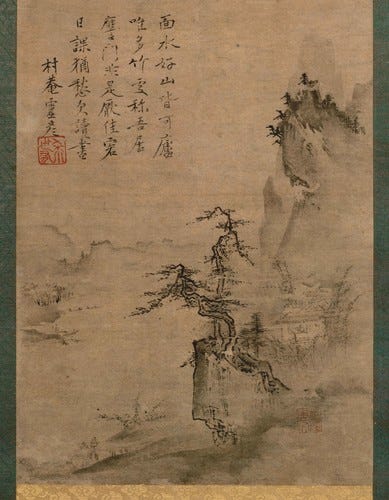 面水好山皆可廬
唯多竹處称吾居
應門於是厭佳客
日課猶愁欠讀書
村菴靈彦